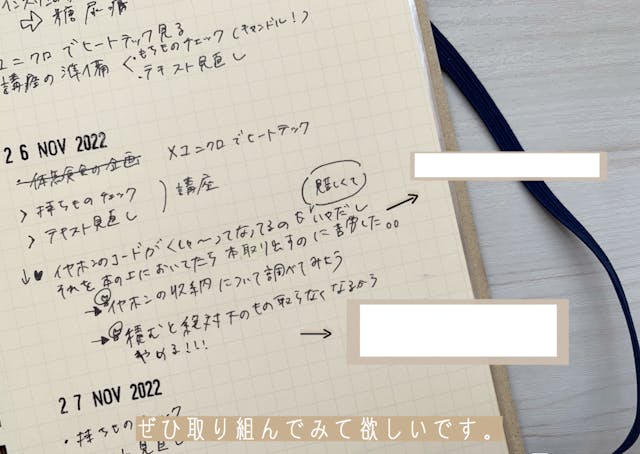 ⇨ 糖尿病
ユニクロでヒートテック見る
講座の準備 <・もちものチェック(キャンドル!)
・テキスト見直し
26 NOV 2022
・体験会の企画
×ユニクロでヒートテック
> 持ちものチェック
> テキスト見直し
) 講座
見苦しくて
↓♥ イヤホンのコードがくしゃ〜ってなってるのがいやだし
それを本の上においてたら本取り出すのに苦労した。。
→ イヤホンの収納について調べてみよう
→ 積むと絶対下のもの取らなくなるから
やめる!!!
27 NOV 2022
・持ちものチェック
テキスト見直し
ぜひ取り組んでみて欲しいです。